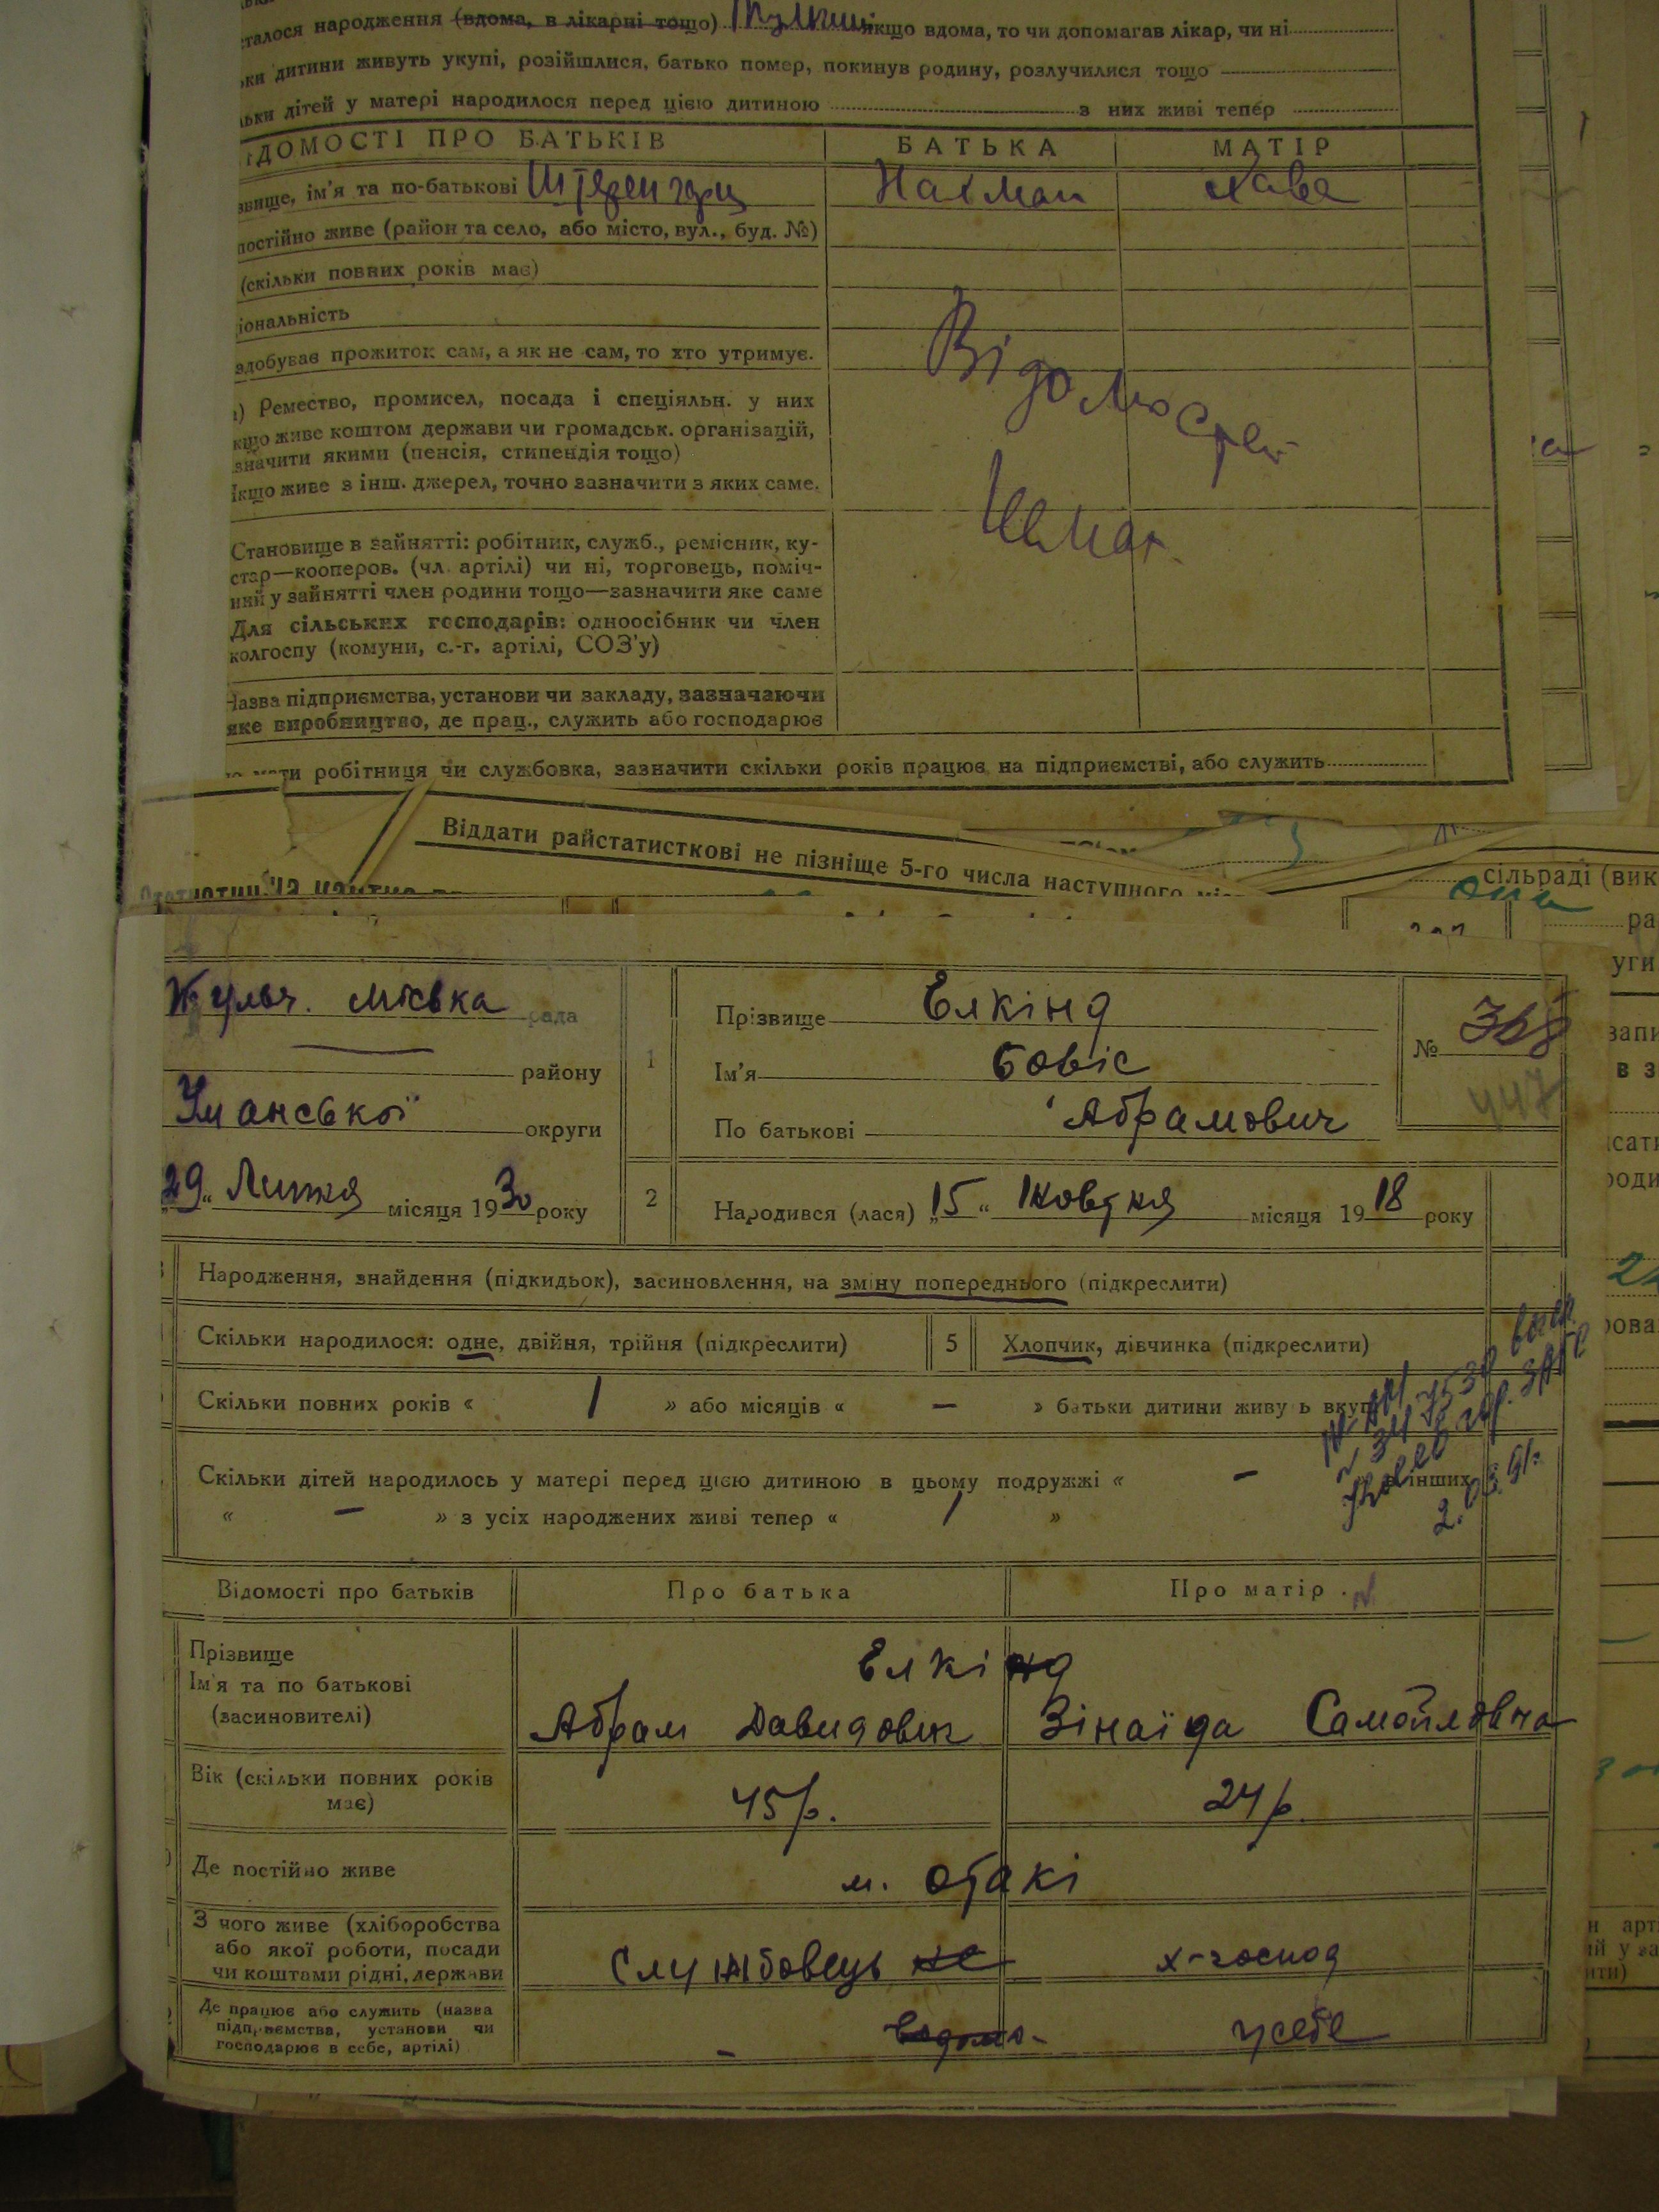 сталося народження (вдома, в лікарні тощо) якщо вдома, то чи допомагав лікар, чи ні
дитини живуть укупі, розійшлися, батько помер, покинув родину, розлучилися тощо
дітей у матері народилося перед цією дитиною з них живі тепер
ВІДОМОСТІ ПРО БАТЬКІВ БАТЬКА МАТІР
звище, ім'я та по-батькові Нахман Хава
постійно живе (район та село, або місто, вул., буд. №)
(скільки повних років має)
іональність
здобуває прожиток сам, а як не сам, то хто утримує.
) Ремество, промисел, посада і спеціяльн. у них
якщо живе коштом держави чи громадськ. організацій,
значити якими (пенсія, стипендія тощо)
Якщо живе з інш. джерел, точно зазначити з яких саме.
Відомостей
Немає
Становище в зайнятті: робітник, служб., ремісник, ку-
стар—кооперов. (чл. артілі) чи ні, торговець, поміч-
ний у зайнятті член родини тощо—зазначити яке саме
Для сільських господарів: одноосібник чи член
колгоспу (комуни, с.-г. артілі, СОЗ'у)
Назва підприємства, установи чи закладу, зазначаючи
яке виробництво, де прац., служить або господарює
мати робітниця чи службовка, зазначити скільки років працює на підприємстві, або служить
Віддати райстатисткові не пізніще 5-го числа наступного
сільраді (вик
міська рада
району
Уманської округи
29 Липня місяця 1930 року
1
Прізвище Елкінд
Ім'я Бовіс
По батькові Абрамович
№ 368
447
2
Народився (лася) „15“ Жовтня місяця 1918 року
Народження, знайдення (підкидьок), засиновлення, на зміну попереднього (підкреслити)
Скільки народилося: одне, двійня, трійня (підкреслити) 5 Хлопчик, дівчинка (підкреслити)
Скільки повних років « 1 » або місяців « — » батьки дитини живу ь вкупі
Скільки дітей народилось у матері перед цією дитиною в цьому подружжі « — інших
« — » з усіх народжених живі тепер « 1 »
Відомості про батьків Про батька Про матір
Прізвище
Ім'я та по батькові
(засиновителі)
Елкінд
Абрам Давидович Зінаїда Самойловна
Вік (скільки повних років
має)
45 р. 24 р.
Де постійно живе м. Отакі
З чого живе (хліборобства
або якої роботи, посади
чи коштами рідні, держави
Службовець х-господ
Де працює або служить (назва
підприємства, установи чи
господарює в себе, артілі)
— у себе